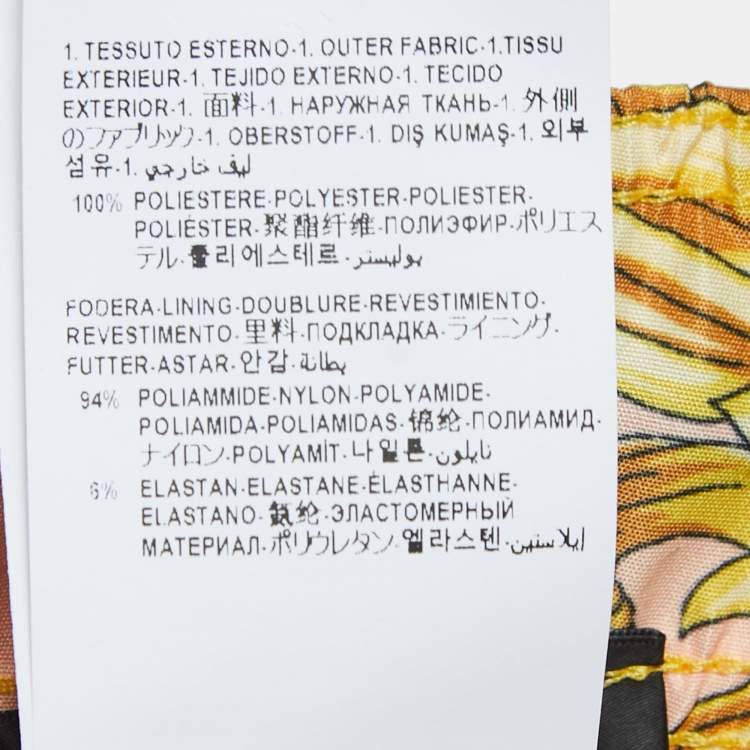 1. TESSUTO ESTERNO-1. OUTER FABRIC-1.TISSU
EXTERIEUR-1. TEJIDO EXTERNO-1. TECIDO
EXTERIOR-1. 面料-1. НАРУЖНАЯ ТКАНЬ-1. 外側
のファブリック-1. OBERSTOFF-1. DIŞ KUMAŞ-1. 외부
섬유-1. ليف خارجي
100% POLIESTERE-POLYESTER-POLIESTER-
POLIÉSTER-聚酯纤维-ПОЛИЭФИР-ポリエス
テル-폴리에스테르-بوليستر
FODERA-LINING-DOUBLURE-REVESTIMIENTO-
REVESTIMENTO-里料-ПОДКЛАДКА-ライニング-
FUTTER-ASTAR-안감-بطانة
94% POLIAMMIDE-NYLON-POLYAMIDE-
POLIAMIDA-POLIAMIDAS-锦纶-ПОЛИАМИД-
ナイロン-POLYAMİT-나일론-نايلون
6% ELASTAN-ELASTANE-ÉLASTHANNE-
ELASTANO-氨纶-ЭЛАСТОМЕРНЫЙ
МАТЕРИАЛ-ポリウレタン-엘라스텐-ايلاستين